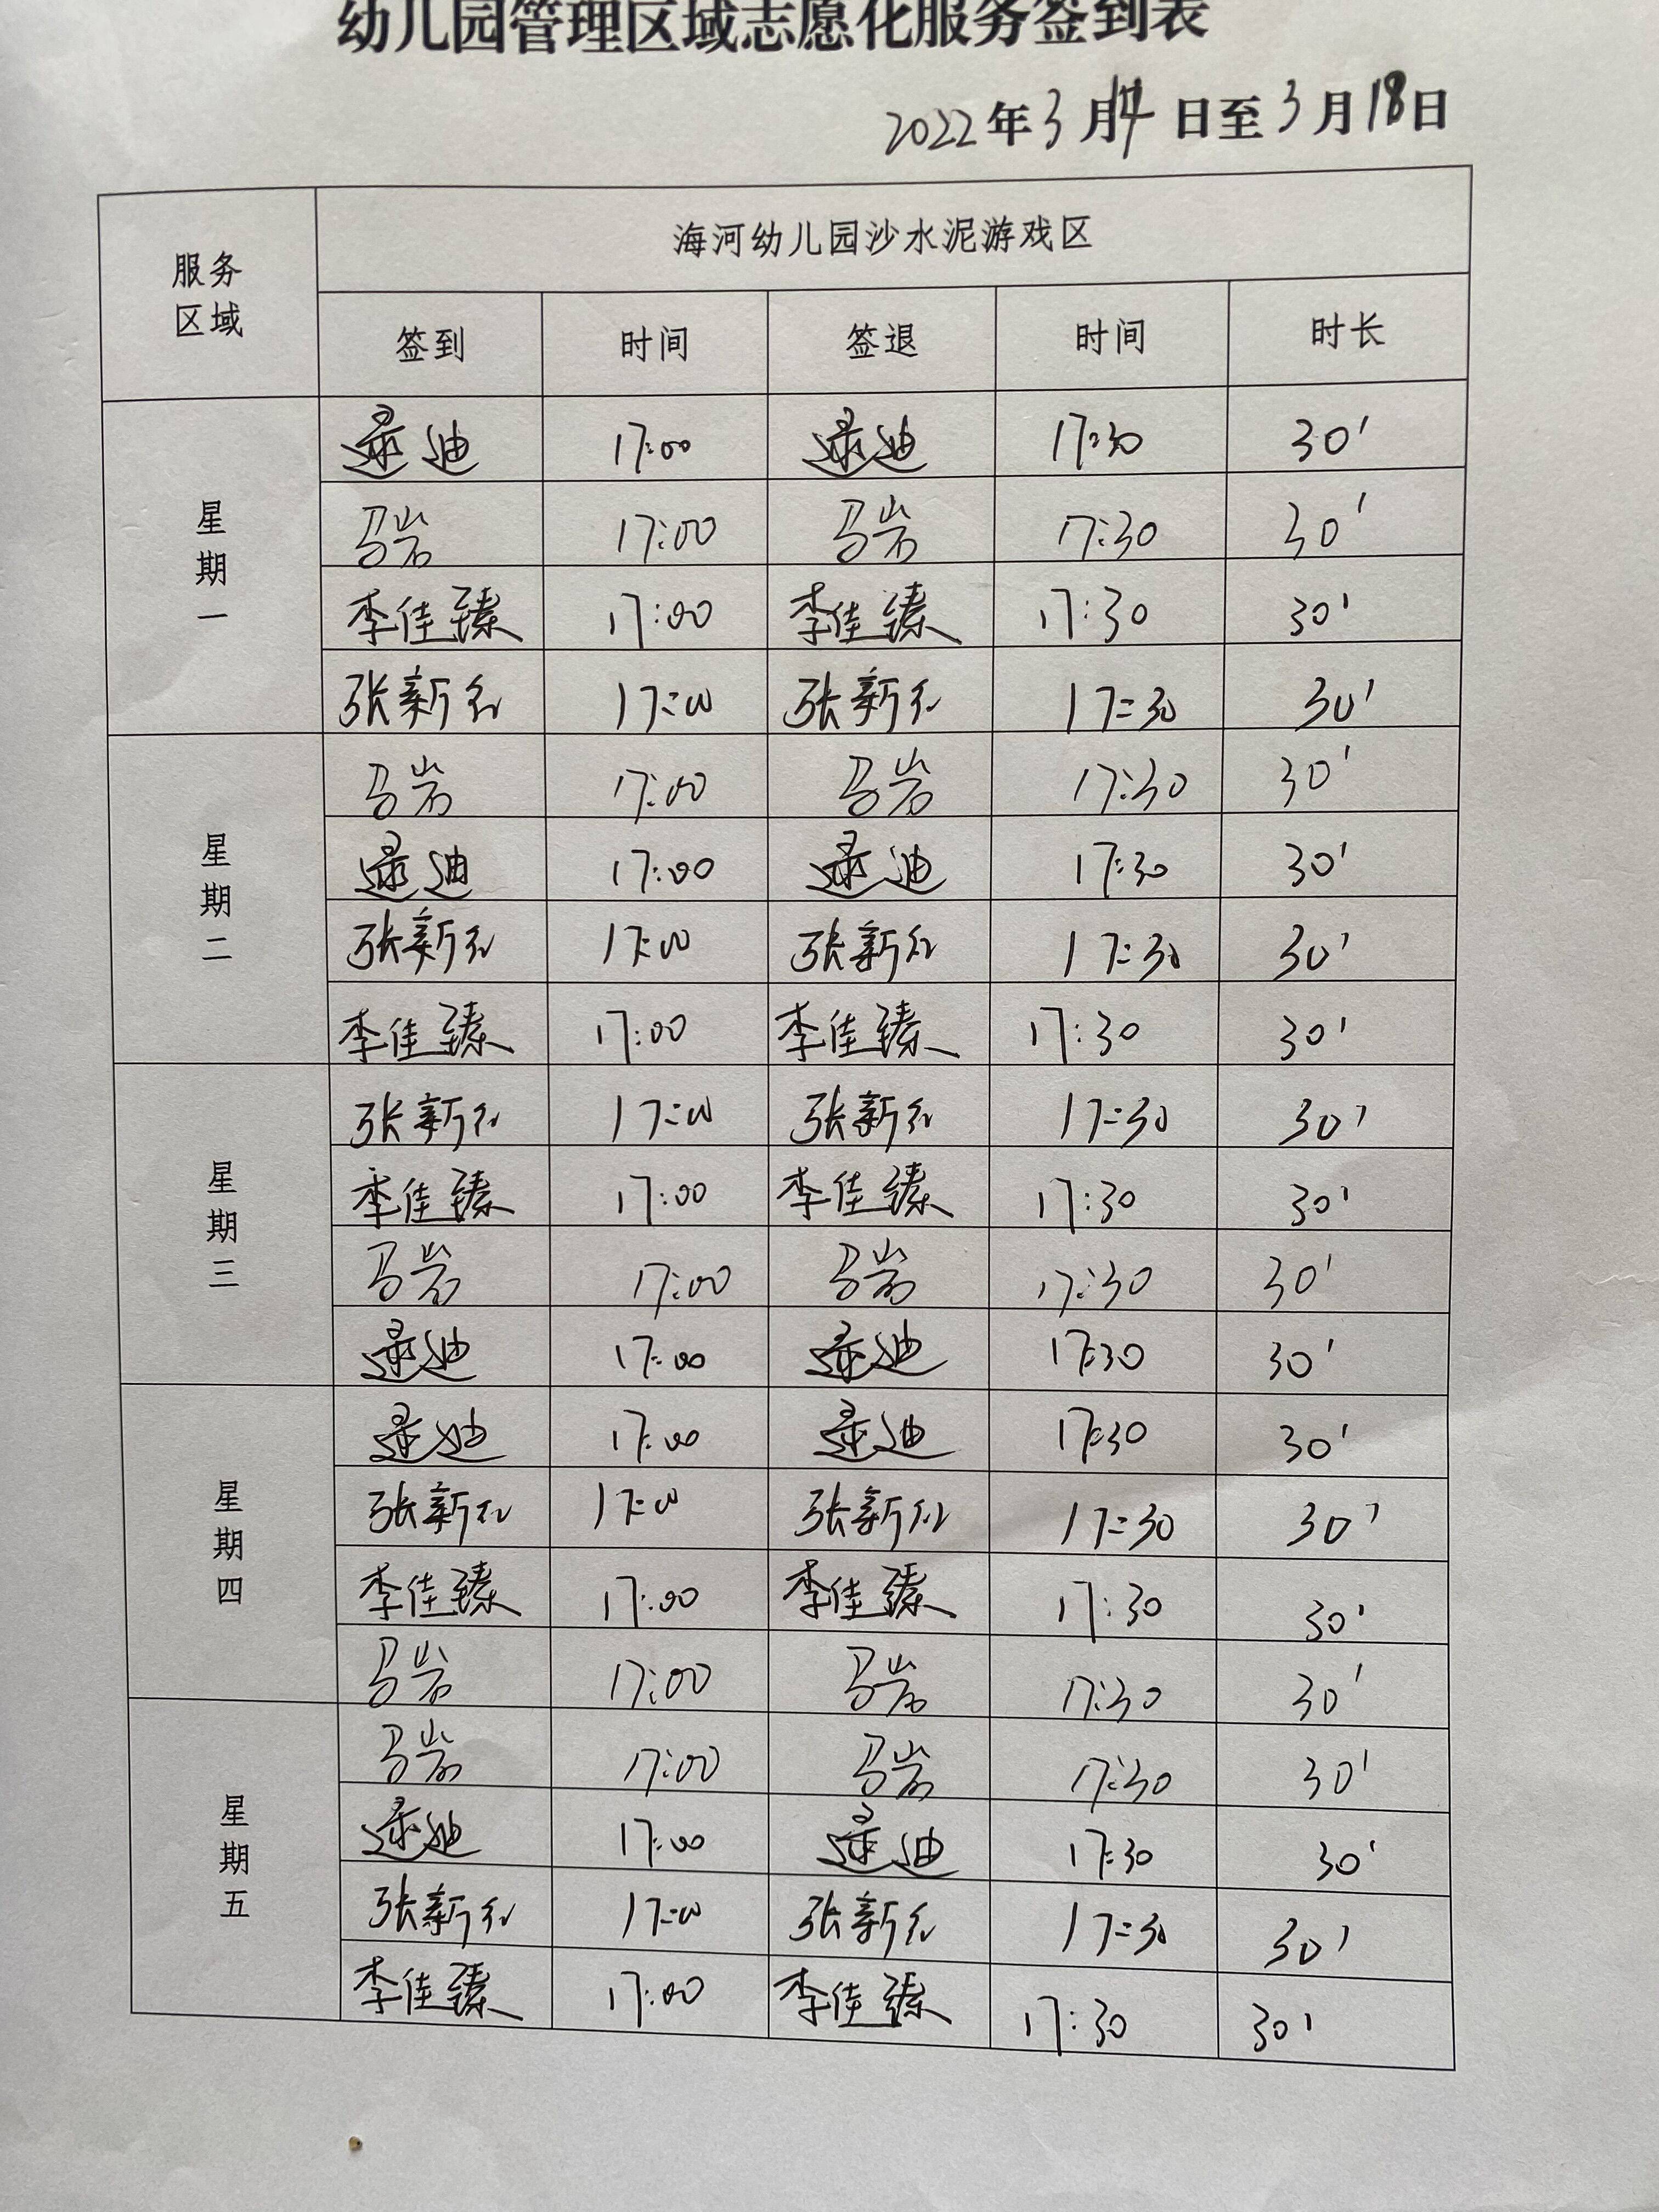 幼儿园管理区域志愿化服务签到表
2022年3月14日至3月18日
服务区域 海河幼儿园沙水泥游戏区
签到 时间 签退 时间 时长
星期一
逯迪 17:00 逯迪 17:30 30'
马岩 17:00 马岩 17:30 30'
李佳臻 17:00 李佳臻 17:30 30'
张新红 17:00 张新红 17:30 30'
星期二
马岩 17:00 马岩 17:30 30'
逯迪 17:00 逯迪 17:30 30'
张新红 17:00 张新红 17:30 30'
李佳臻 17:00 李佳臻 17:30 30'
星期三
张新红 17:00 张新红 17:30 30'
李佳臻 17:00 李佳臻 17:30 30'
马岩 17:00 马岩 17:30 30'
逯迪 17:00 逯迪 17:30 30'
星期四
逯迪 17:00 逯迪 17:30 30'
张新红 17:00 张新红 17:30 30'
李佳臻 17:00 李佳臻 17:30 30'
马岩 17:00 马岩 17:30 30'
星期五
马岩 17:00 马岩 17:30 30'
逯迪 17:00 逯迪 17:30 30'
张新红 17:00 张新红 17:30 30'
李佳臻 17:00 李佳臻 17:30 30'